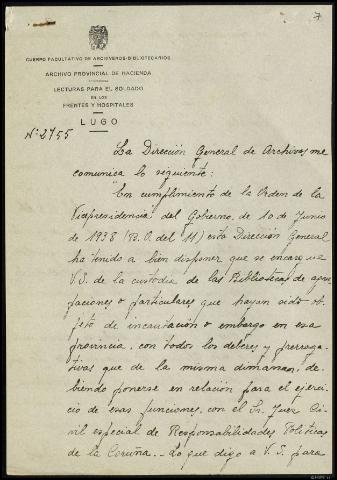 7
CUERPO FACULTATIVO DE ARCHIVEROS-BIBLIOTECARIOS
ARCHIVO PROVINCIAL DE HACIENDA
LECTURAS PARA EL SOLDADO
EN LOS
FRENTES Y HOSPITALES
LUGO
Nº 2755
La Dirección General de Archivos me
comunica lo seguiente:
"En cumplimiento de la Orden de la
Vicepresidencia del Gobierno, de 10 de Junio
de 1938 (B.O. del 11) esta Dirección General
ha tenido a bien disponer que se encargue
V.S. de la custodia de las Bibliotecas de agru
paciones o particulares que hayan sido ob-
jeto de incautación o embargo en esa
provincia, con todos los deberes y prerroga-
tivas que de la misma dimanan, de-
biendo ponerse en relación para el ejerci-
cio de esas funciones, con el Sr. Juez Ci-
vil especial de Responsabilidades Politicas
de la Coruña.- Lo que digo a V.S. para